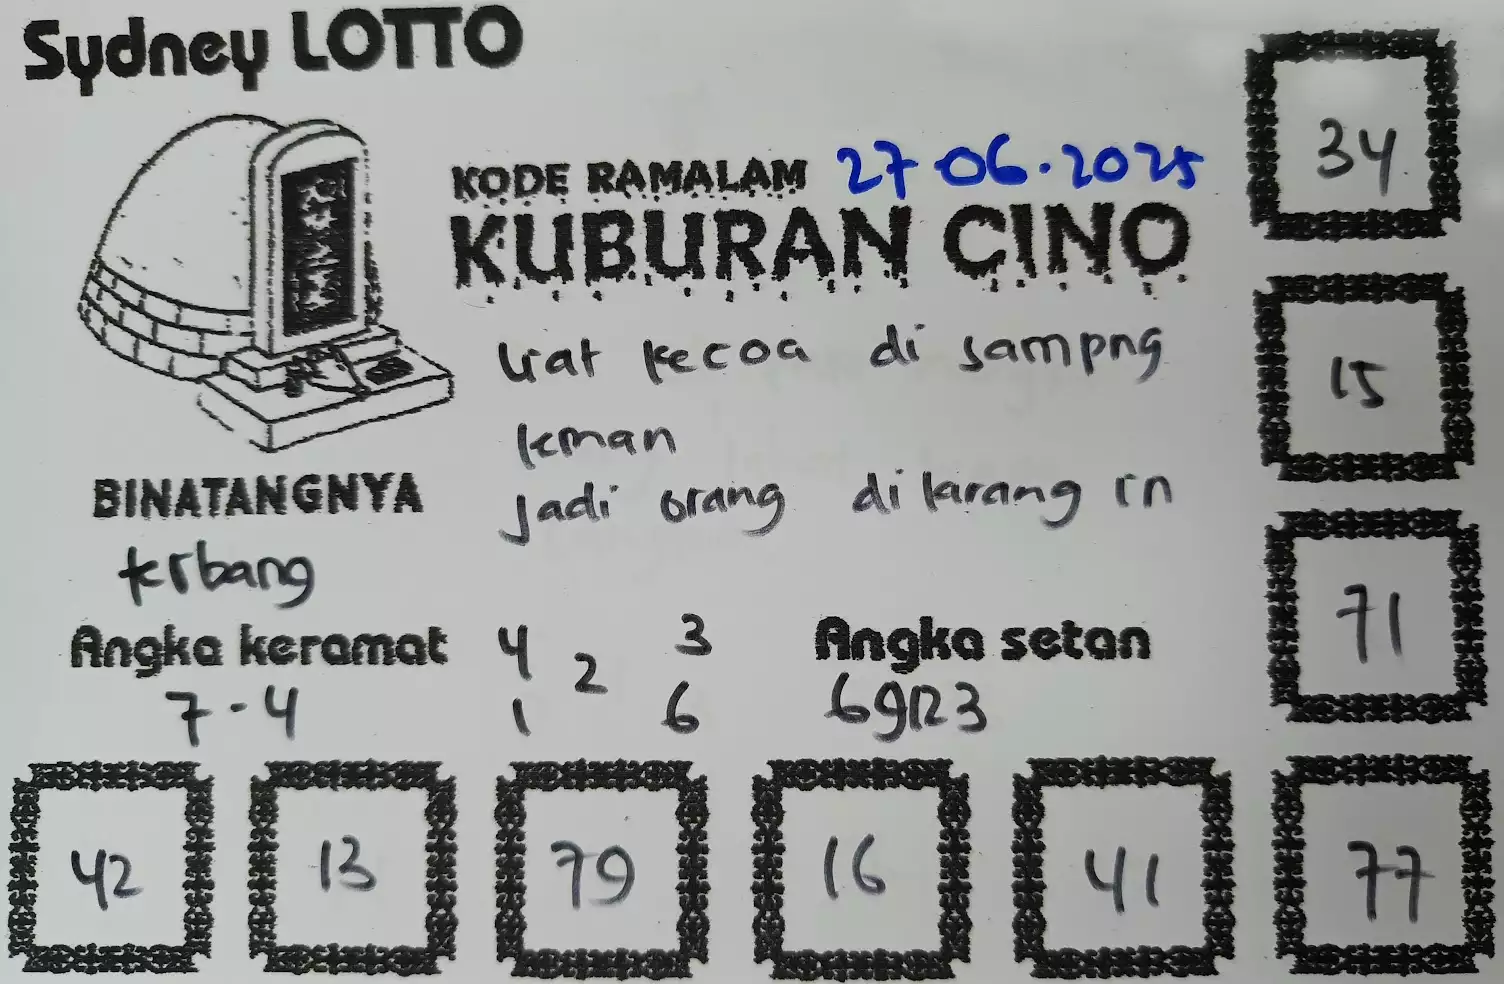 Sydney LOTTO
KODE RAMALAM 27 06.2025
KUBURAN CINO
liat kecoa di sampng
kman
Jadi orang di larang in
BINATANGNYA
krbang
Angka keramat
7-4
4 3
2
1 6
Angka setan
69123
34
15
71
42 13 79 16 41 77